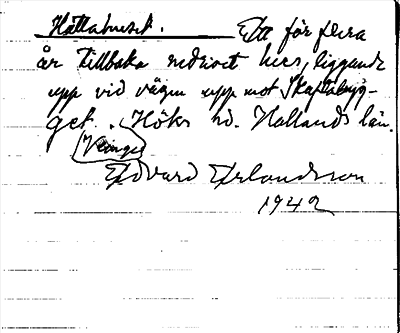 Hållahuset. Ett för flera
år tillbaka nedrivet hus, liggande
upp vid vägen upp mot Skaftabyg-
get. Höks hd. Hallands län.
Veinge
Edvard Erlandsson
1942